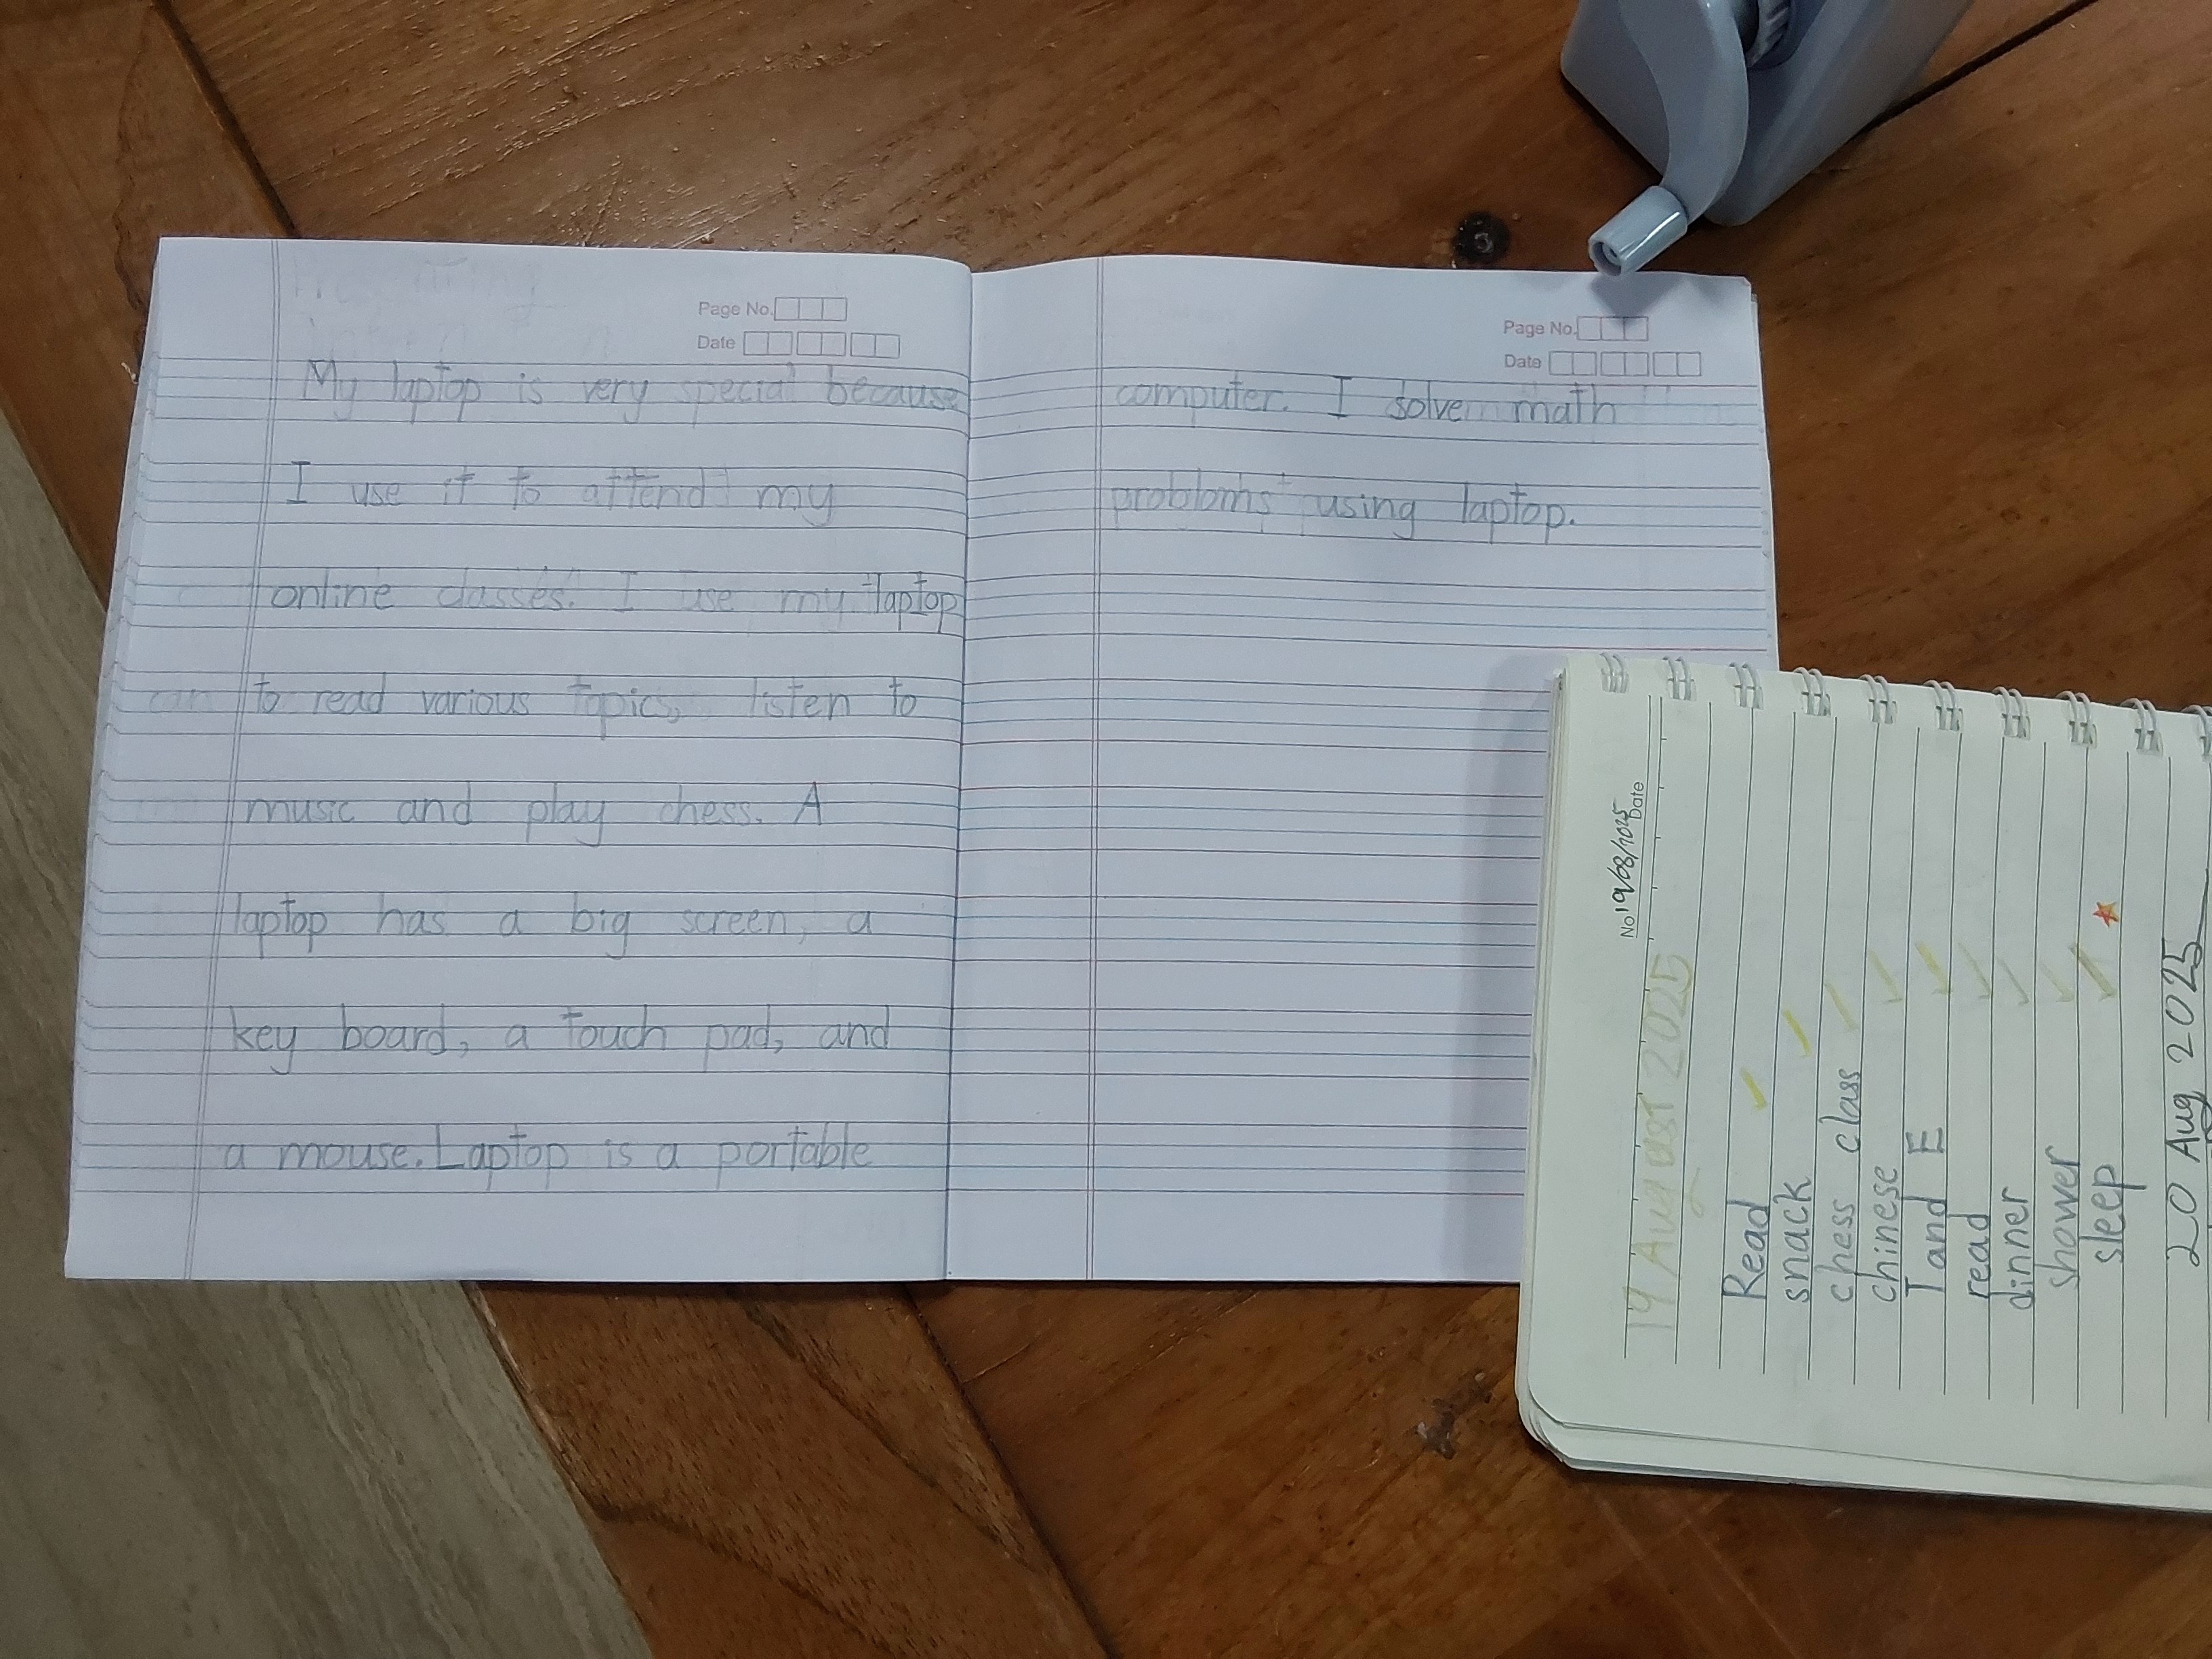 Page No.
Date
My laptop is very special because
I use it to attend my
online classes. I use my laptop
to read various topics, listen to
music and play chess. A
laptop has a big screen, a
key board, a touch pad, and
a mouse. Laptop is a portable
Page No.
Date
computer. I solve math
probloms using laptop.
No 19/08/2025
Date
19 August 2025
Read
snack
chess class
chinese
I and E
read
dinner
shower
sleep
20 Aug 2025